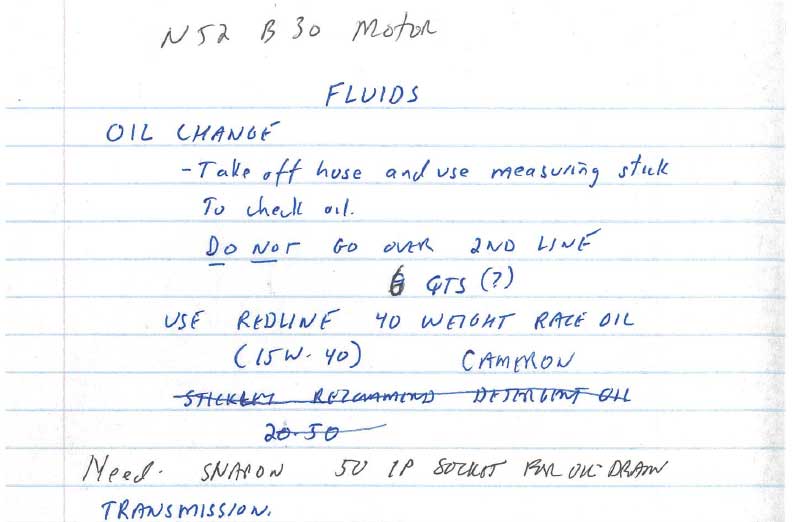 N52 B30 Motor
FLUIDS
OIL CHANGE
- Take off hose and use measuring stick
To check oil.
DO NOT GO OVER 2ND LINE
6 QTS (?)
USE REDLINE 40 WEIGHT RACE OIL
(15W-40) CAMERON
RECOMMEND DETERGENT OIL
20-50
Need. SNAPON 50 IP SOCKET FOR OIL DRAIN
TRANSMISSION.